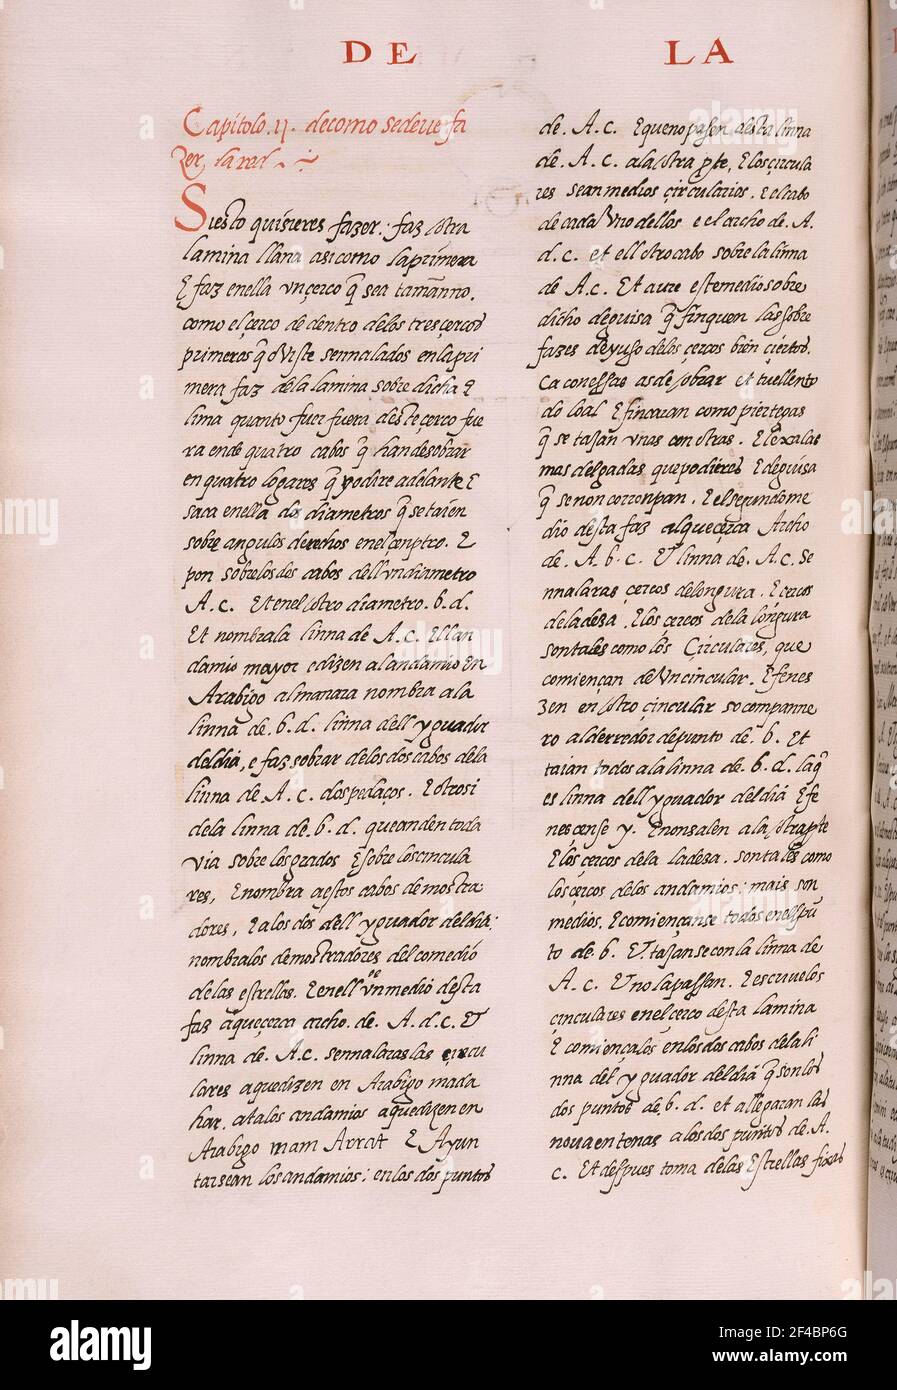 DE LA
Capitolo. II. de como se deue fa
zer, la red
Si esto quisieres fazer: faz otra
lamina llana asi como la primera
E faz en ella vn çerco q̄ sea tamanno.
como el çerco de dentro delos tres çercos
primeros q̄ oviste sennalados en la pri
mera faz de la lamina sobre dicha E
lima quanto fuer fuera deste çerco fue
ra ende quatro cabos q̄ han de sobrar
en quatro logares q̄ yo dire adelante E
saca en ella dos diametros q̄ se taien
sobre angulos derechos en el çentro. E
pon sobre los dos cabos dell vn diametro
A. C. Et en el otro diametro. b. d.
Et nombra la linna de A. C. Ell an
damio mayor e dizen al andamio en
Arabigo almanara nombra a la
linna de. b. d. linna dell yguador
del dia, e faz sobrar de los dos cabos de la
linna de A. C. dos pedaços. E otrosi
de la linna de. b. d. que anden toda
via sobre los grados E sobre los circula
res, E nombra a estos cabos demostra
dores, E a los dos dell yguador del dia:
nombralos demostradores del comedio
de las estrellas. E en ell vn medio desta
faz a que çerca archo. de. A. d. C. Et
linna de. A. C. sennalaras las çircu
lares a que dizen en Arabigo mada
har. a talos andamios a que dizen en
Arabigo mam Arrat E Ayun
tarsean los andamios: en los dos puntos
de. A. C. E que no pasen desta linna
de. A. C. a la otra pte, E los çircula
res sean medios çircularios. E el cabo
de cada vno dellos e el archo de. A.
d. C. et ell otro cabo sobre la linna
de A. C. Et aure este medio sobre
dicho de guisa q̄ finquen las sobre
fazes de yuso de los çercos bien çiertos.
Ca con essas as de obrar et tuellento
do loal E fincaran como pierteças
q̄ se tajan vnas con otras. E lexalas
mas delgadas que podieres E de guisa
q̄ se non corronpan. E el segundo me
dio desta faz al que çerca Archo
de. A. b. C. Et linna de. A. C. se
nnalaras çercos de longura. E cercos
de ladeza. E los çercos de la longura
son tales como los Çirculares, que
comiençan de vn cincular. E fenes
zen en otro çincular so companne
ro al derredor de punto de. b. Et
taian todos a la linna de. b. d. la q̄
es linna dell yguador del dia E fe
nescense y. E non salen a la otra pte
E los çercos de la ladeza. son tales como
los cercos de los andamios: mais son
medios. E comiençanse todos en el pū
to de. b. Et tajanse con la linna de
A. C. E no la passan. E escriue los
cinculares en el cerco desta lamina
E comiença los en los dos cabos de la li
nna del yguador del dia q̄ son los
dos puntos de. b. d. et allegaran las
nouaentenas a los dos puntos de. A.
C. Et despues toma de las Estrellas fixas
alamy
Image ID: 2F4BP6G
www.alamy.com